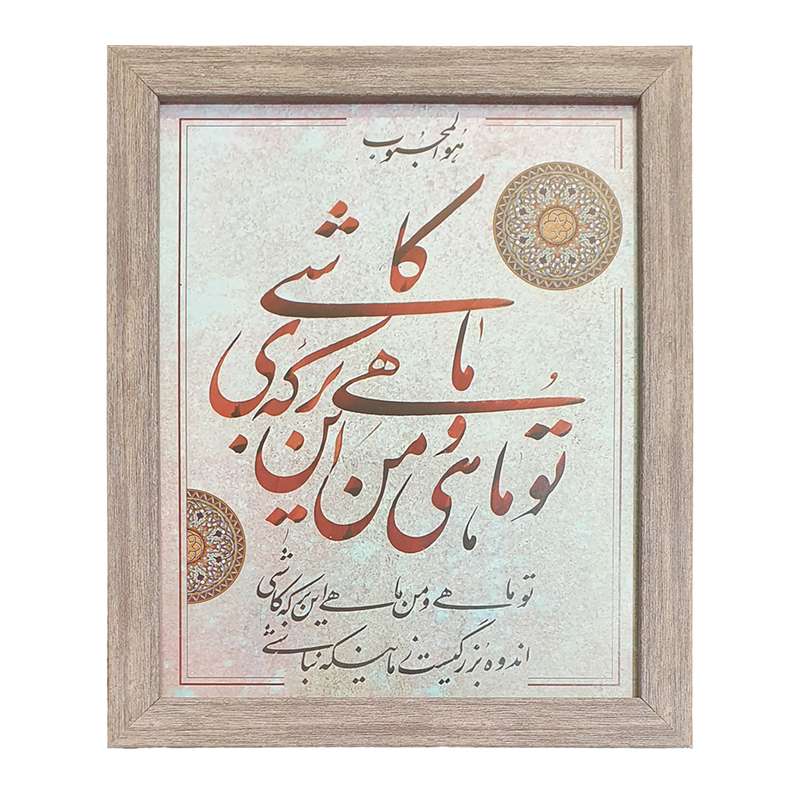 هو المحبوب
تو ماهی و من ماهی این برکه ی کاشی
تو ماهی و من ماهی این برکه کاشی
اندوه بزرگیست زمانیکه نباشی